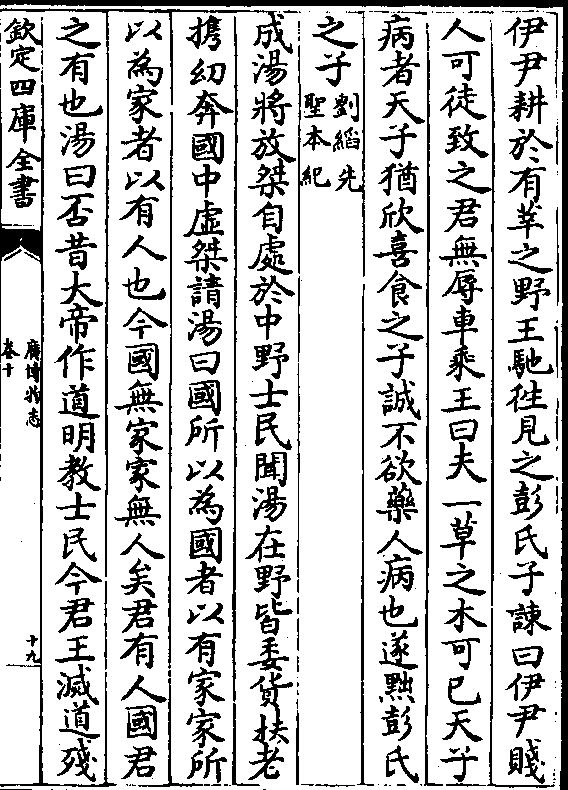 伊尹耕於有莘之野王馳徃見之彭氏子諫曰伊尹賤
人可徒致之君無辱車乘王曰夫一草之木可已天子
病者天子猶欣喜食之子誠不欲藥人病也遂黜彭氏
之子劉縚先聖本紀
成湯將放桀自處於中野士民聞湯在野皆委貨扶老
携幼奔國中虚桀請湯曰國所以為國者以有家家所
以為家者以有人也今國無家家無人矣君有人國君
之有也湯曰否昔大帝作道明教士民今君王滅道殘
欽定四庫全書
廣博物志
卷十
十九